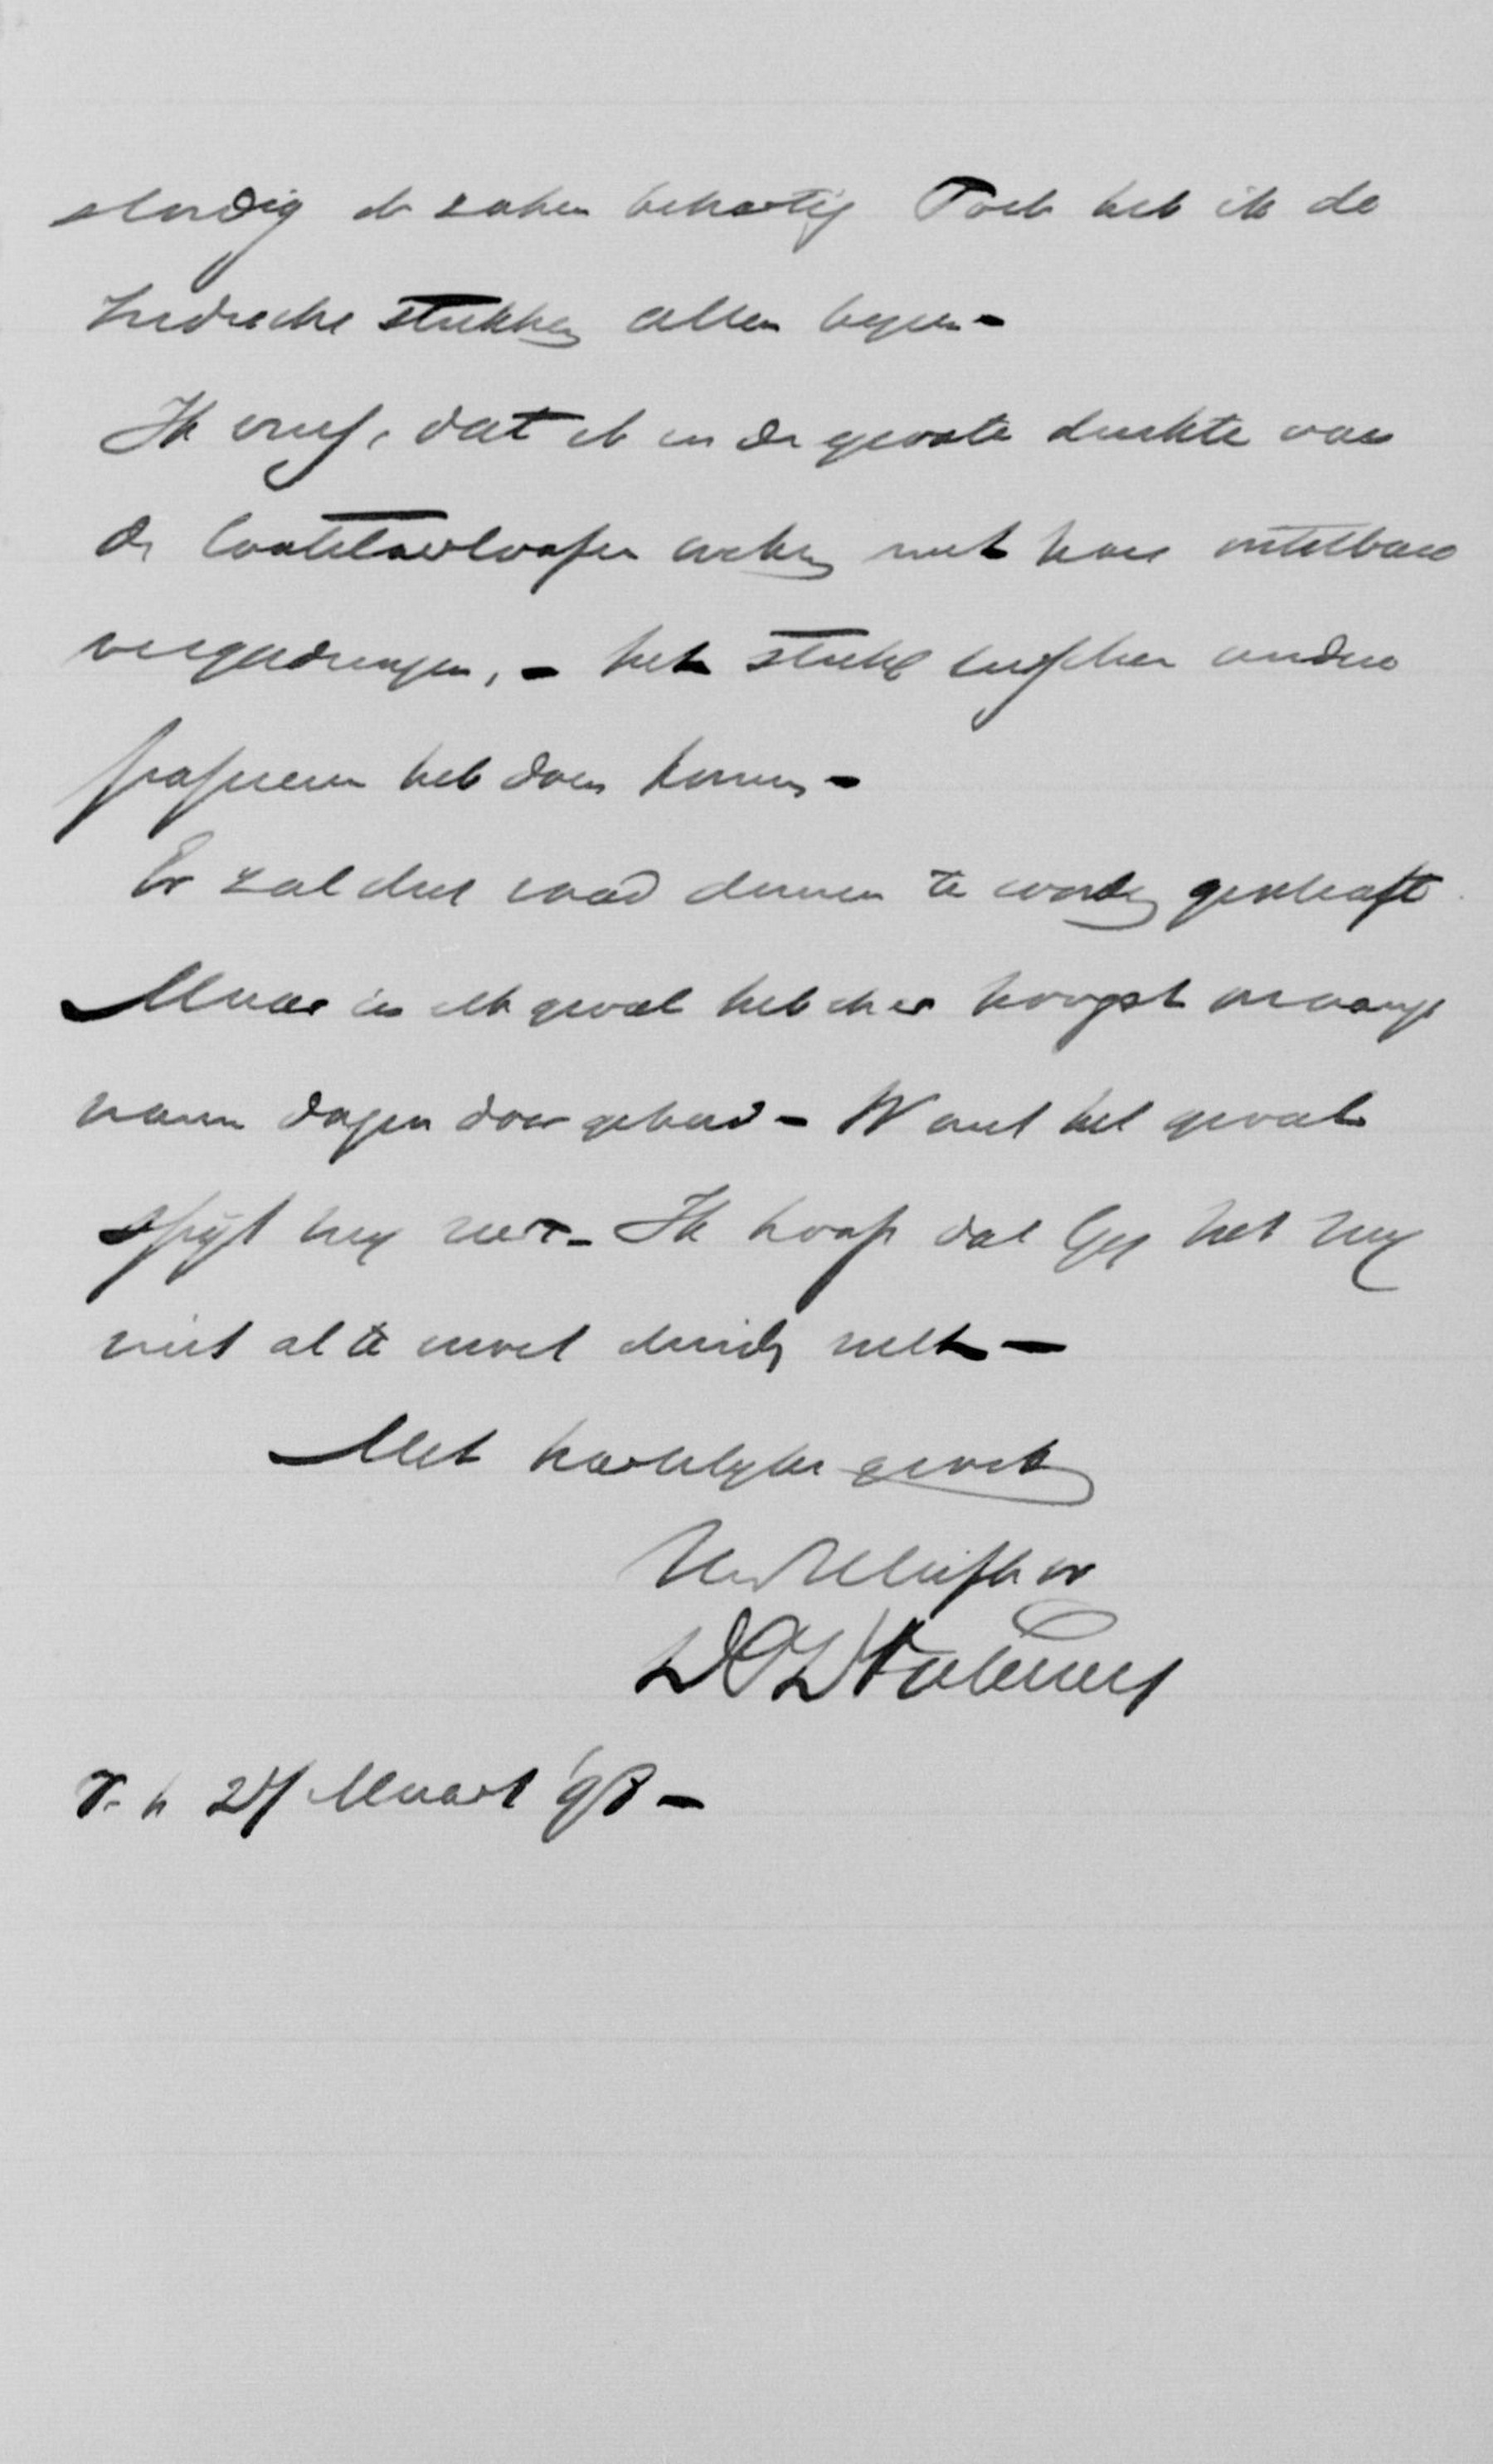 slordig de zaken behartig Toch heb ik de
Indische stukken allen bijeen –
Ik vrees, dat ik in de groote drukte van
de laatstverloopen weken met hare ontelbare
vergaderingen, – het stuk tusschen andere
papieren heb doen komen –
Er zal dus raad dienen te worden geschaft.
Maar in elk geval heb ik er hoogst onaange
name dagen door gehad – Want het geval
spijt mij zeer – Ik hoop dat Gij het mij
niet al te euvel duiden zult –
Met hartelijke groeten
27 Maart '98 –